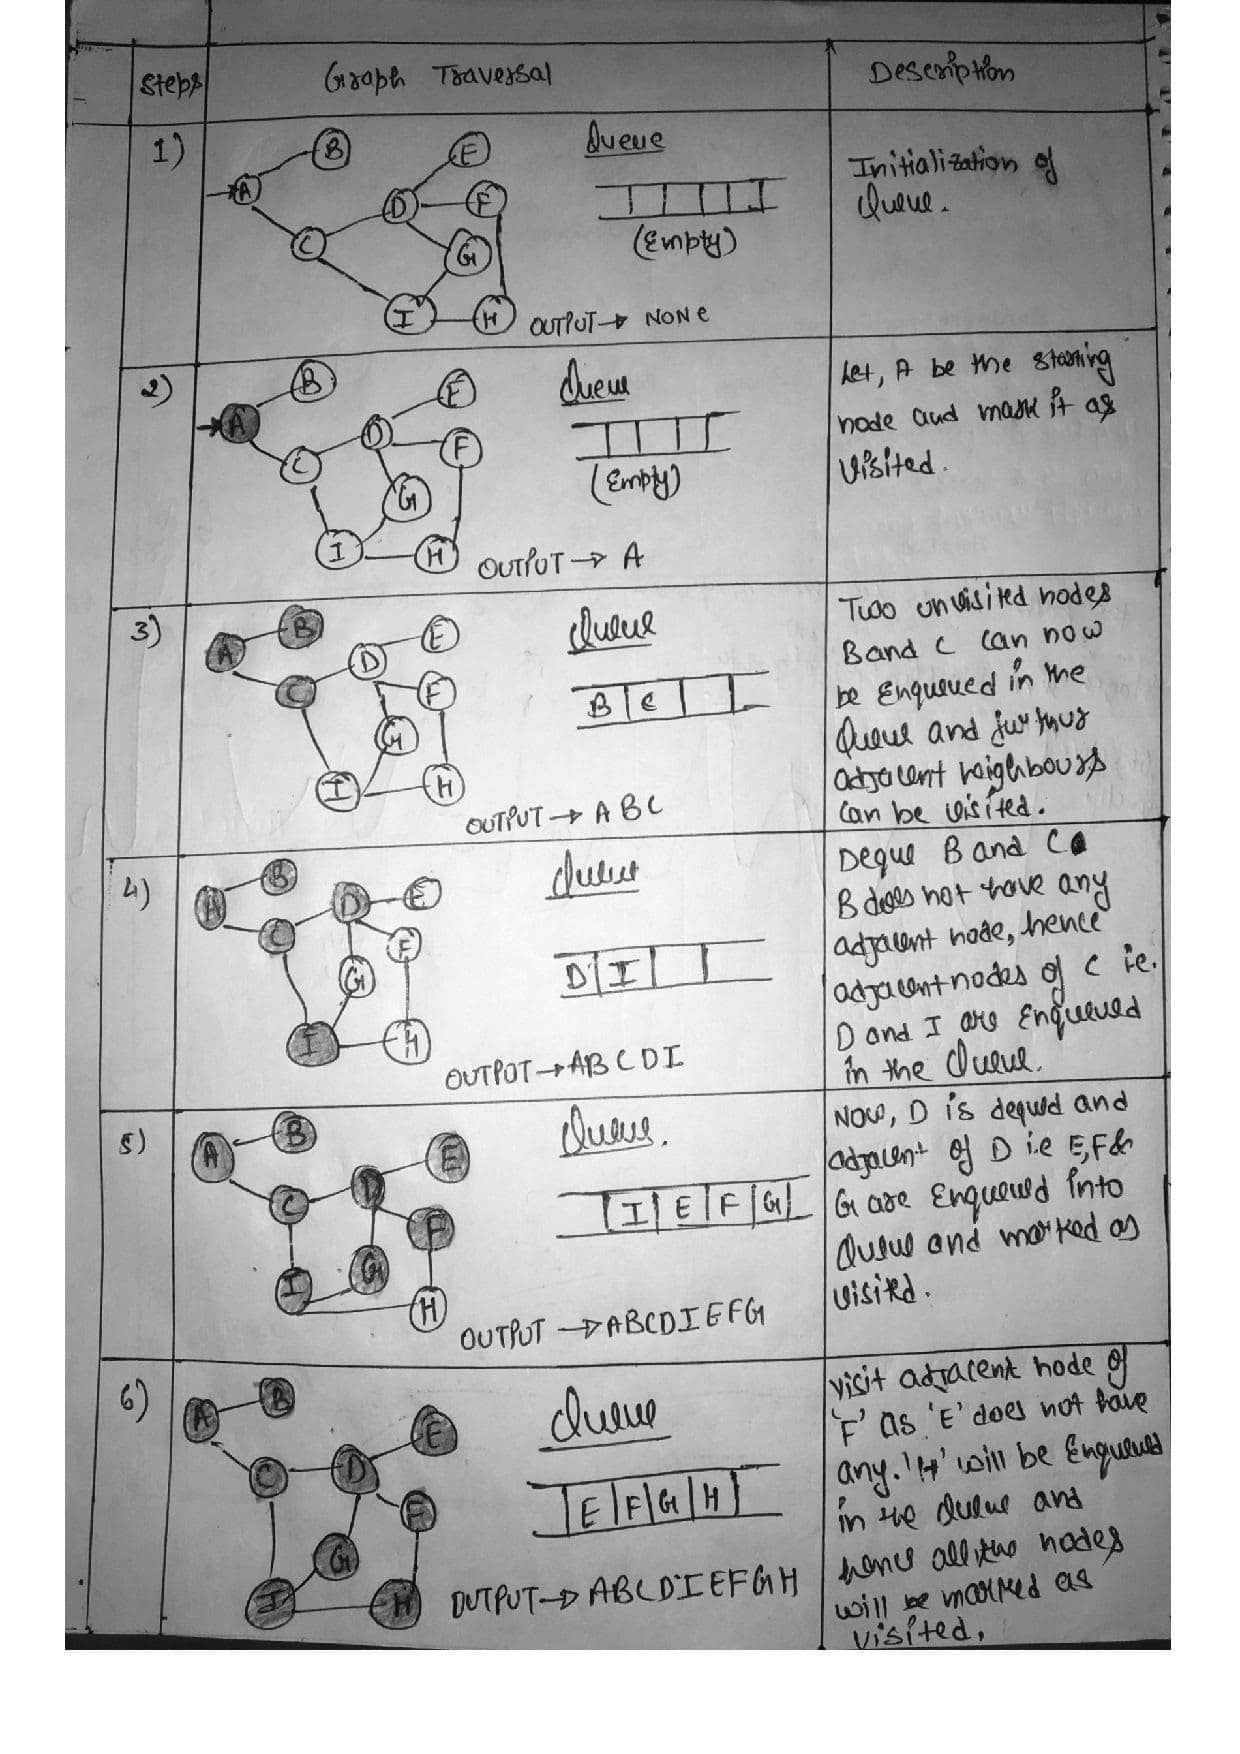 Steps Graph Traversal Description
1)
A B C D E F G I H
Queue
(Empty)
OUTPUT → NONE
Initialization of
Queue.
2)
A B C D E F G I H
Queue
(Empty)
OUTPUT → A
Let, A be the starting
node and mask it as
Visited.
3)
A B C D E F G I H
Queue
B C
OUTPUT → A B C
Two unvisited nodes
B and C can now
be Enqueued in the
Queue and furthur
adjacent neighbours
Can be visited.
4)
A B C D E F G I H
Queue
D I
OUTPOT → AB C D I
Deque B and C
B does not have any
adjacent node, hence
adjacent nodes of C ie.
D and I are Enqueued
in the Queue.
5)
A B C D E F G I H
Queue.
I E F G
OUTPUT → ABCDIEFG
Now, D is dequed and
adjacent of D i.e E,F&
G are Enqueued into
Queue and marked as
visited.
6)
A B C D E F G I H
Queue
E F G H
OUTPUT → ABCDIEFGH
Visit adjacent node of
'F' as 'E' does not have
any. 'H' will be Enqueued
in the Queue and
hence all the nodes
will be marked as
visited,